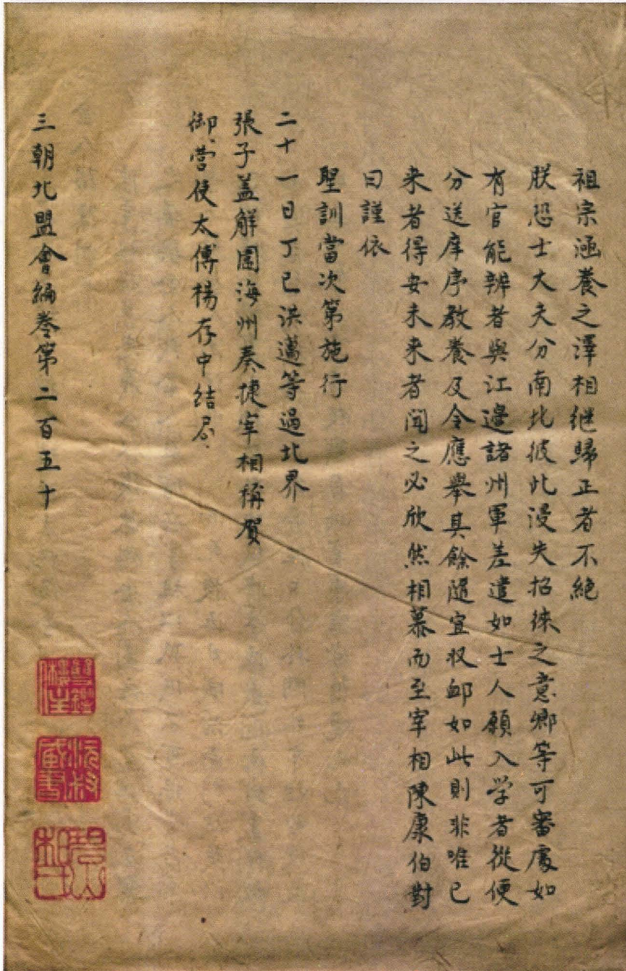 祖宗涵養之澤相继歸正者不絶
朕恐士大夫分南北彼此浸失招徠之意卿等可審處如
有官能辨者與江邊諸州軍差遣如士人願入学者從便
分送庠序教養及令應舉其餘隨宜収邮如此則非唯已
来者得安未来者闻之必欣然相慕而至宰相陳康伯對
曰謹依
聖訓當次第施行
二十一日丁巳洪邁等過北界
張子盖觧圍海州奏捷宰相稱賀
御營使太傅楊存中結局
三朝北盟會編卷第二百五十